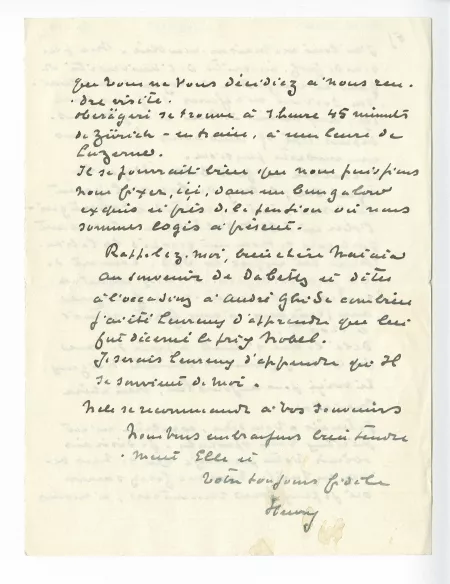 que vous ne vous décidiez à nous ren-
dre visite.
Oberägeri se trouve à 1 heure 45 minuts
de Zürich - en train, à une heure de
Luzerne.
Il se pourrait bien que nous puissions
nous fixer, içi, dans un bungalow
exquis et près de la pension où nous
sommes logés à présent.
Rappelez, moi, bien chère
au souvenir de et dites
à l'occasion à André Ghide combien
j'ai été heureux d'apprendre que lui
fut décerné le prix Nobel.
Je serais heureux d'apprendre qu'Il
se souvient de moi.
Nele se recommande à vos souvenirs
Nous vous embrassons bien tendre
ment Elle et
votre toujours fidèle
Henry